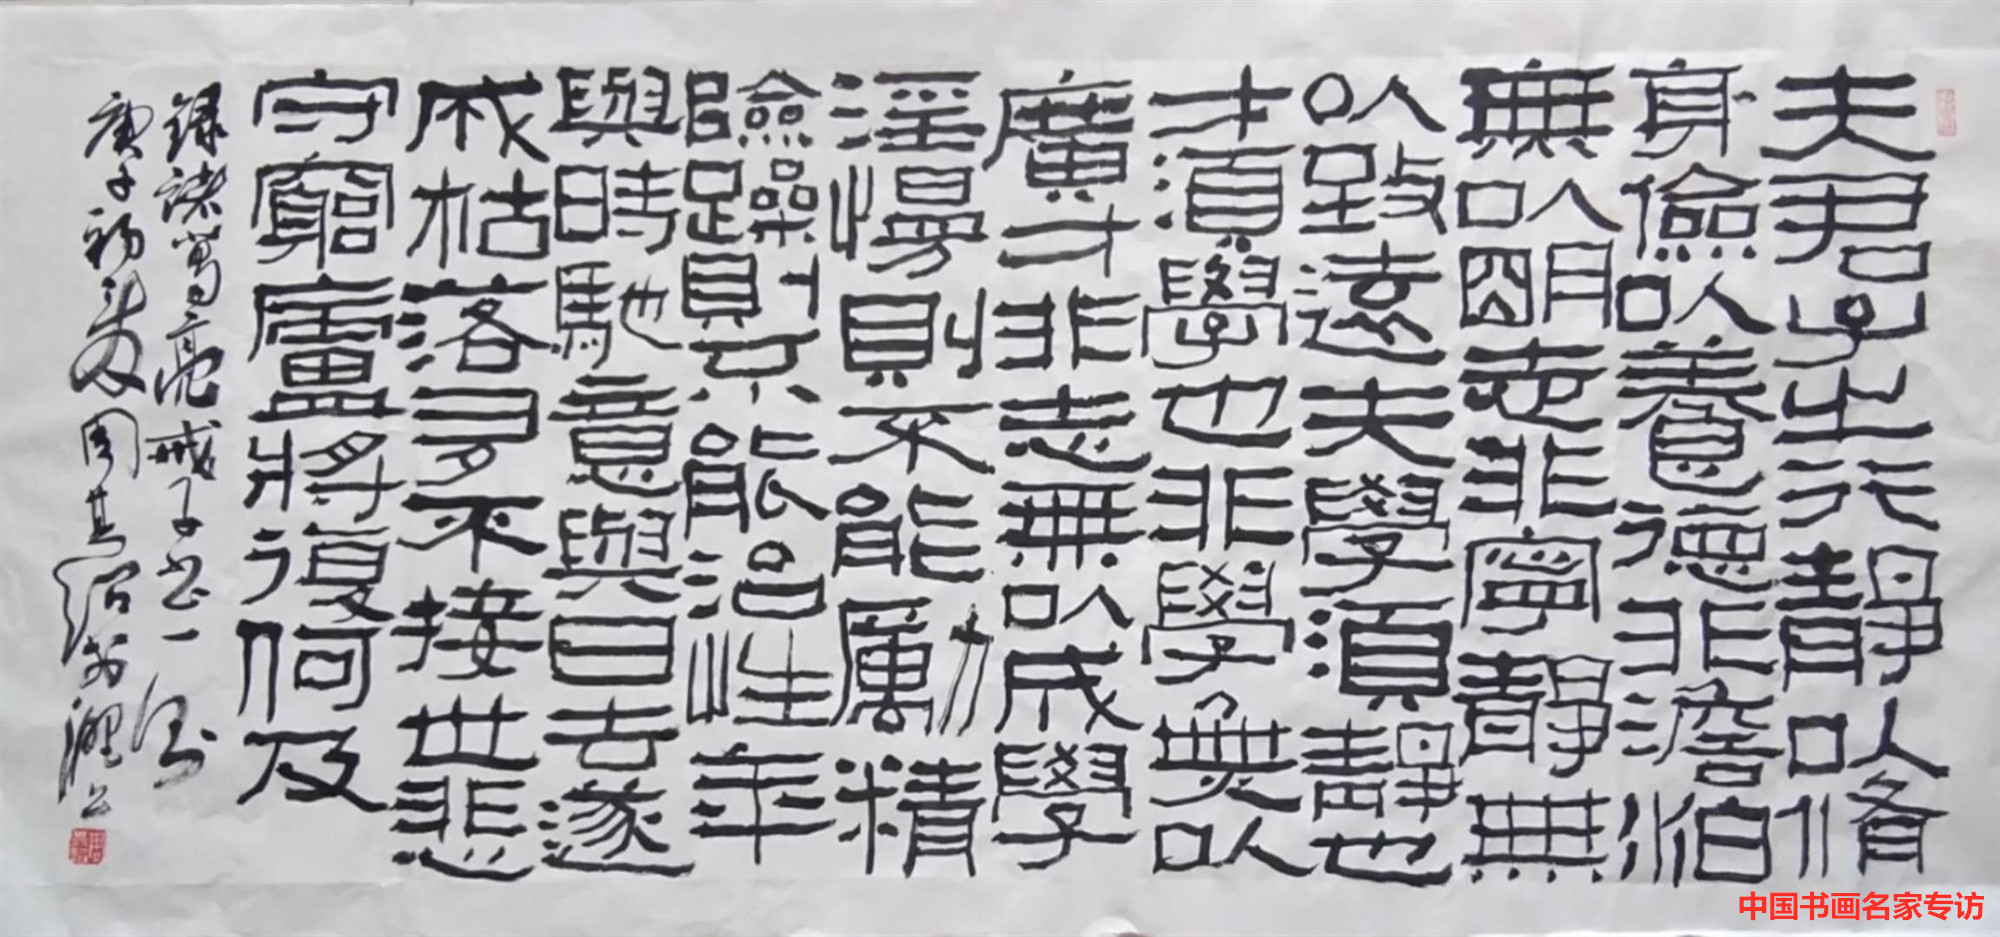 夫君子之行靜以脩
身儉以養德非澹泊
無以明志非寧靜無
以致遠夫學須靜也
才須學也非學無以
廣才非志無以成學
淫慢則不能勵精
險躁則不能治性年
與時馳意與日去遂
成枯落多不接世悲
守窮廬將復何及
錄諸葛亮戒子書一
庚子初周其
中国书画名家专访